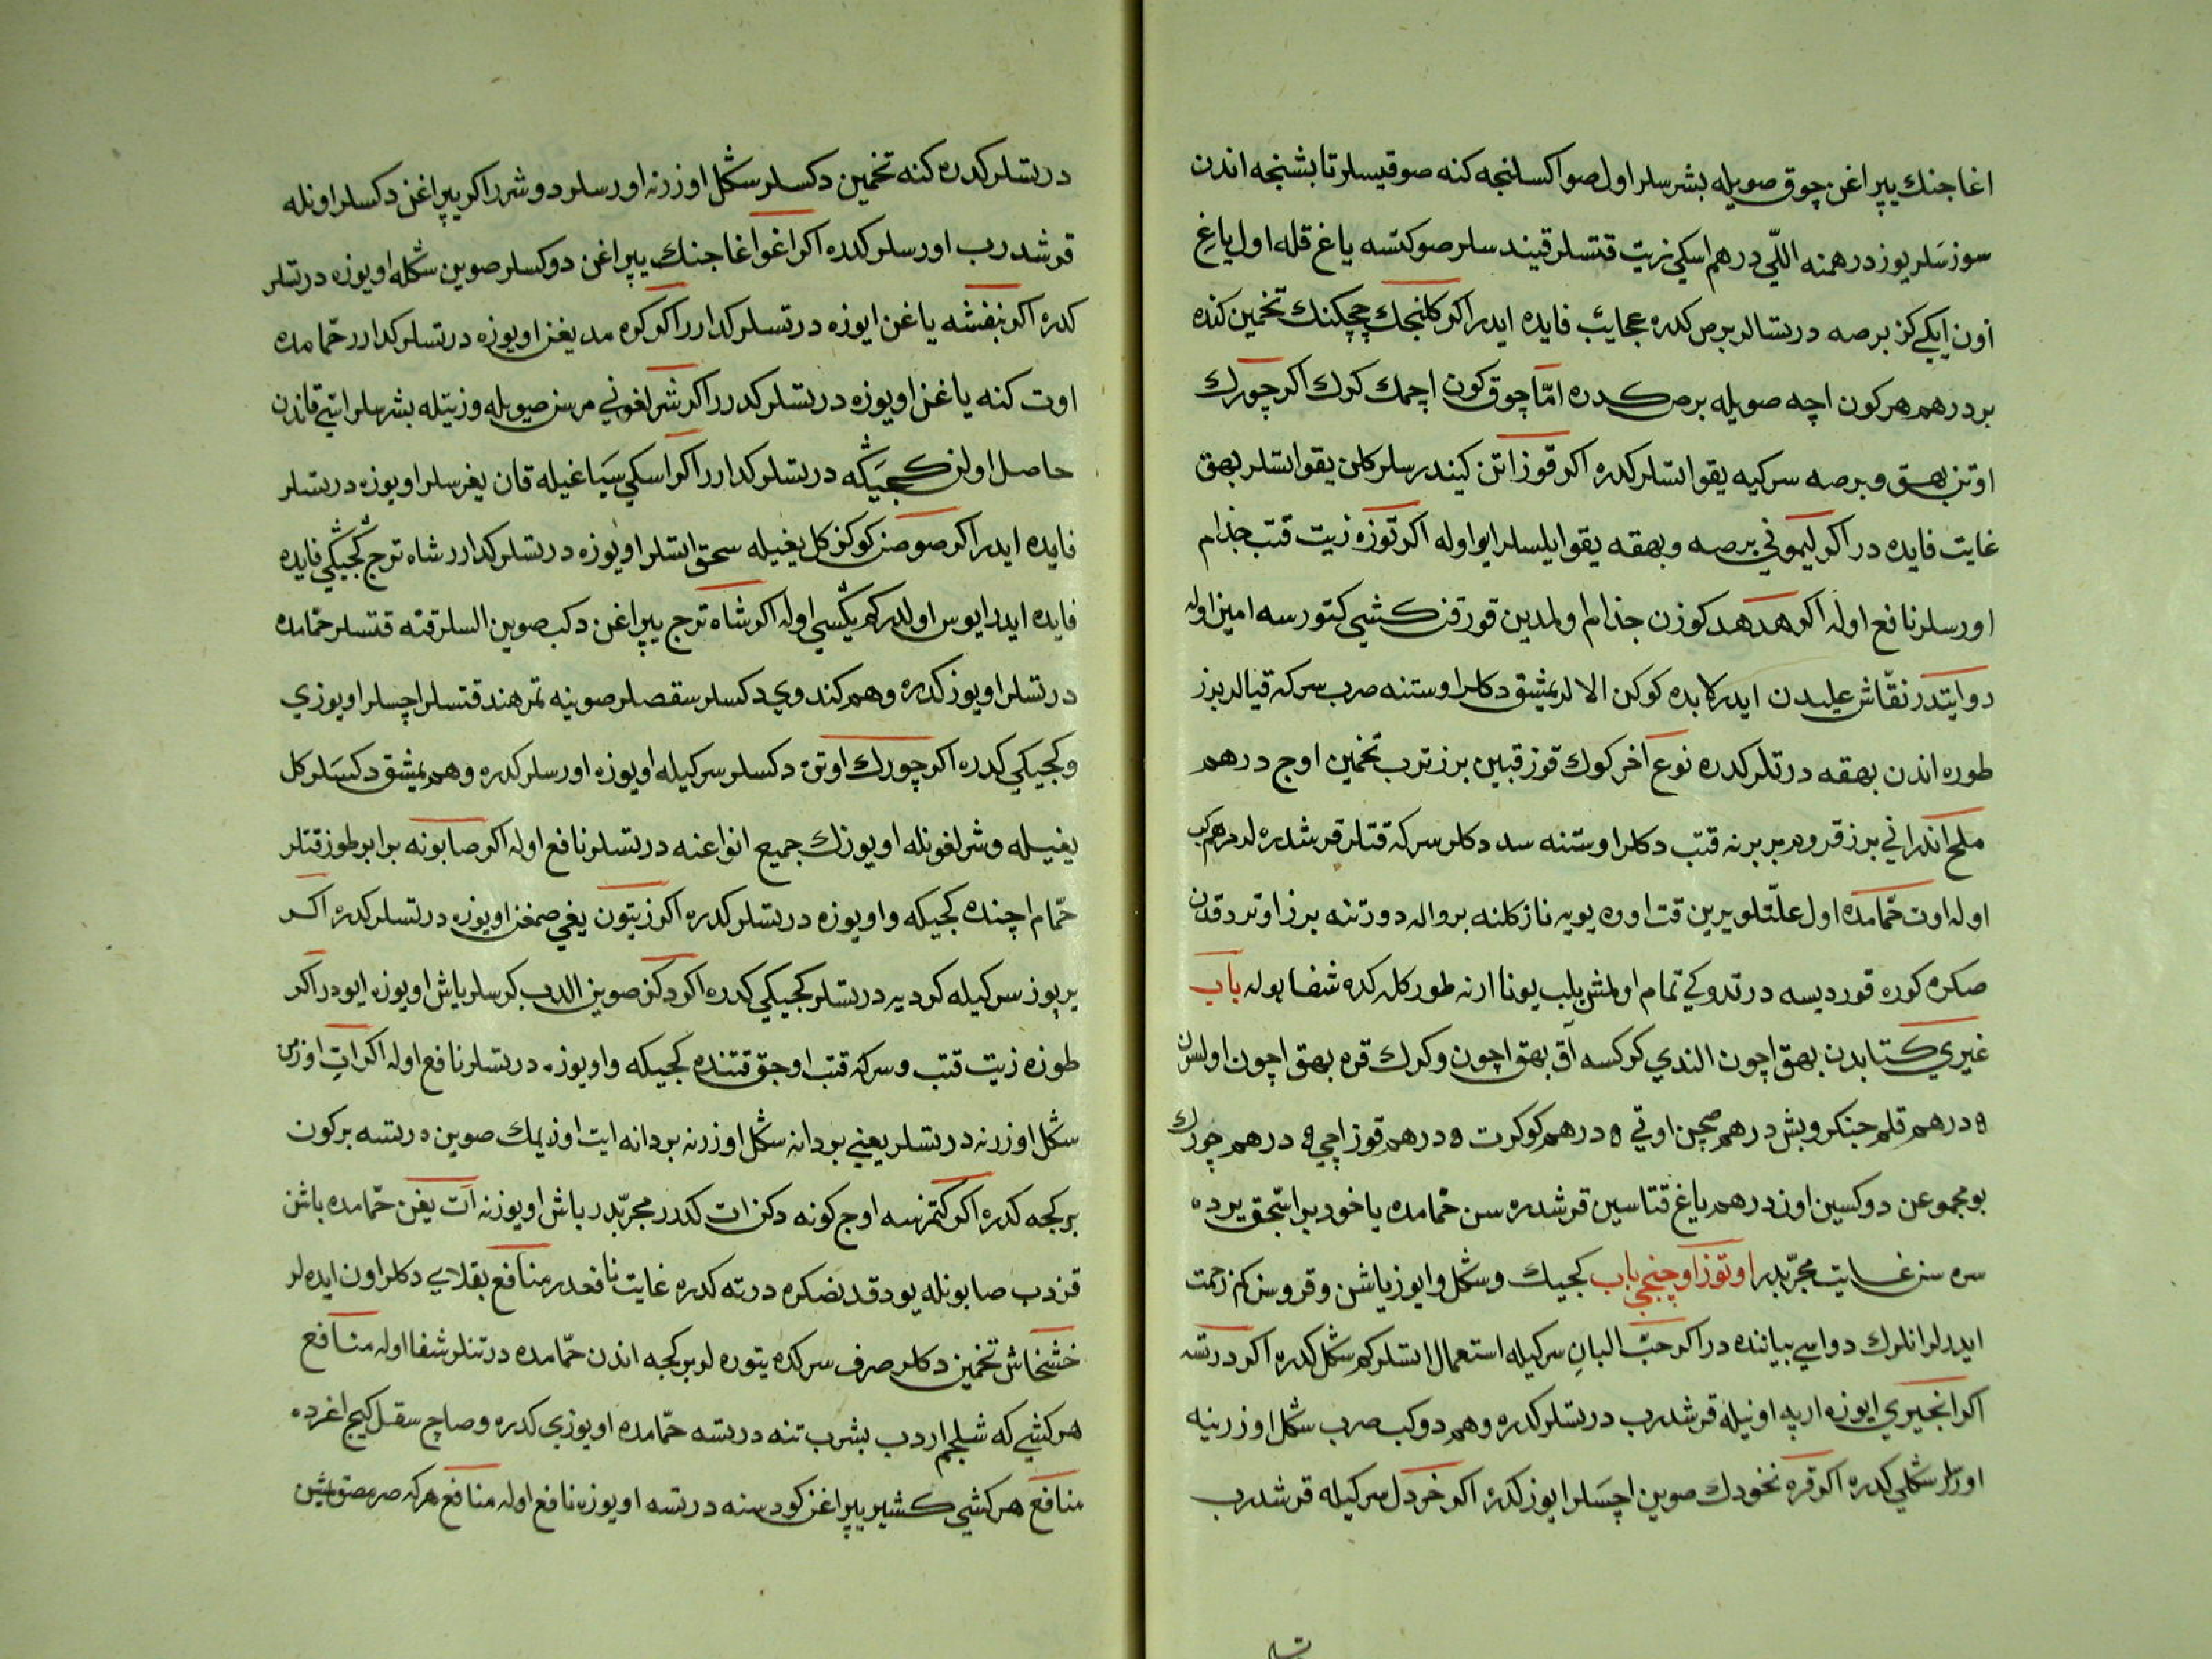 اغاجنك يپراغن چوق صويله بشرسلر اول صو اكسلنجه كنه صو قيسلر تا بشنجه اندن
سوزسلر يوز درهمنه اللّي درهم اسكي زيت قتسلر قيندسلر صو كتسه ياغ قله اول ياغ
اون ايكي كز برصه درتسالر برص كدره عجايب فايده ايدر اكر كلنجك چچكنك تخمين كنده
بر درهم هر كون اچه صويله برص كدره امّا چوق كون اچمك كرك اكر چورك
اوتن بهق و برصه سركيه يقو اتسلر كدره اكر قوز اتن كيندرسلر كلن يقو اتسلر بهق
غايت فايده در اكر ليموني برصه و بهقه يقو ايلسلر ايو اوله اكر توزه زيت قتب جذام
اورسلر نافع اوله اكر هدهد كوزن جذام اولمدين قورقن كشي كتورسه امين اوله
دوايتدر نقّاش عليدن ايدر كابده كوكن الالر يمشق دكلر اوستنه صرب سركه قيالر برز
طوره اندن بهقه درتلر كدره نوع آخر كوك قوز قبين برز ترب تخمين اوج درهم
ملح اندراني برز قروهر بربرنه قتب دكلر اوستنه سد دكلر سركه قتلر قرشدره لر مرهم كب
اوله اوت حمّامده اول علّتلو يرين قت اوره يويه نازكلنه بر واله دورتنه برز اوتر دقدن
صكره كوره قورديسه درتدوكي تمام اولمش بلب يونا ارنه طوركله كده شفا بوله باب
غيري كتابدن بهق اچون الندي كركسه آق بهق اچون و كرك قره بهق اچون اولسون
٥ درهم قلم جنكر و بش درهم صچن اوتي ٥ درهم كوكرت ٥ درهم قوز اچي ٥ درهم چورك
بو مجموعن دوكسين اوز درهم ياغ قتاسين قرشدره سن حمّامده ياخود بر اسّجق يرده
سره سن غايت مجرّبدر اوتوز اوچنجي باب كجيك و سكل و ايوز ياشن و قروسن كم زحمت
ايدرلر انلرك دواسي بياننده در اكر حبّ البان سركيله استعمال اتسلر كم سكل كدره اكر درتسه
اكر انجيري ايوزه اربه اونيله قرشدرب درتسلر كدره و هم دوكب صرب سكل اوزرنيه
اورلر سكلي كدره اكر قره نخودك صوين اچسلر ايوز كدره اكر خردل سركيله قرشدرب
درتسلر كدره كنه تخمين دكسلر سكل اوزرنه اورسلر دوشرر اكر يپراغن دكسلر اونله
قرشدرب اورسلر كدره اكر اغو اغاجنك يپراغن دوكسلر صوين سكله اويوزه درتسلر
كدره اكر بنفشه ياغن ايوزه درتسلر كدارر اكر كوكره مد يغن اويوزه درتسلر كدارر حمّامده
اوت كنه ياغن اويوزه درتسلر كدرر اكر شرلغوني مرسن صويله و زيتله بشرسلر استي قاندن
حاصل اولن كجيكه درتسلر كدارر اكر اسكي سيا غيله قان يغرسلر اويوزه درتسلر
فايده ايدر اكر صوصن كوكن كل يغيله سحق اتسلر اويوزه درتسلر كدارر شاه ترج كجيكي فايده
فايده ايدر ايوس اولدر كم يكسي اوله اكر شاه ترج يپراغن دكب صوين السلر قنه قتسلر حمّامده
درتسلر اويوز كدره و هم كندوي دكسلر سقصلر صوينه تمر هند قتسلر اچسلر اويوزي
و كجيكي كدره اكر چورك اوتن دكسلر سركيله اويوزه اورسلر كدره و هم يمشق دكسلر كل
يغيله و شرلغونله اويوزك جميع انواعنه درتسلر نافع اوله اكر صابونه برابر طوز قتلر
حمّام اچنده كجيكه و اويوزه درتسلر كدره اكر زيتون يغي صمغن اويوزه درتسلر كدره اكر
يريوز سركيله كرديه درتسلر كجيكي كدره اكر دكز صوين الدب كرسلر ياش اويوزه ايودر اكر
طوزه زيت قتب و سركه قتب اوجق قتنده كجيكه و اويوزه درتسلر نافع اوله اكر ات اوزمن
سكل اوزرنه درتسلر يعني بر دانه سكل اوزرنه بر دانه ايت اوزيمك صوين درتسه بر كون
بر كجه كدره اكر كتمزسه اوج كونه دكن ات كدر مجرّبدر باش اويوزنه ات يغن حمّامده باشن
قزدب صابونله يودقدنصكره درته كدره غايت نافعدر منافع بقلايي دكلر اون ايده لر
خشخاش تخمين دكلر صرف سركده يتوره لر بر كجه اندن حمّامده درتنلر شفا اوله منافع
هر كشي كه شلجم اردب بشرب تنه درتسه حمّامده اويوزي كدره و صاچ سقل كيج اغرده
منافع هر كشي كشير يپراغن كودسنه درتسه اويوزه نافع اوله منافع هر كه صرمصق باشين